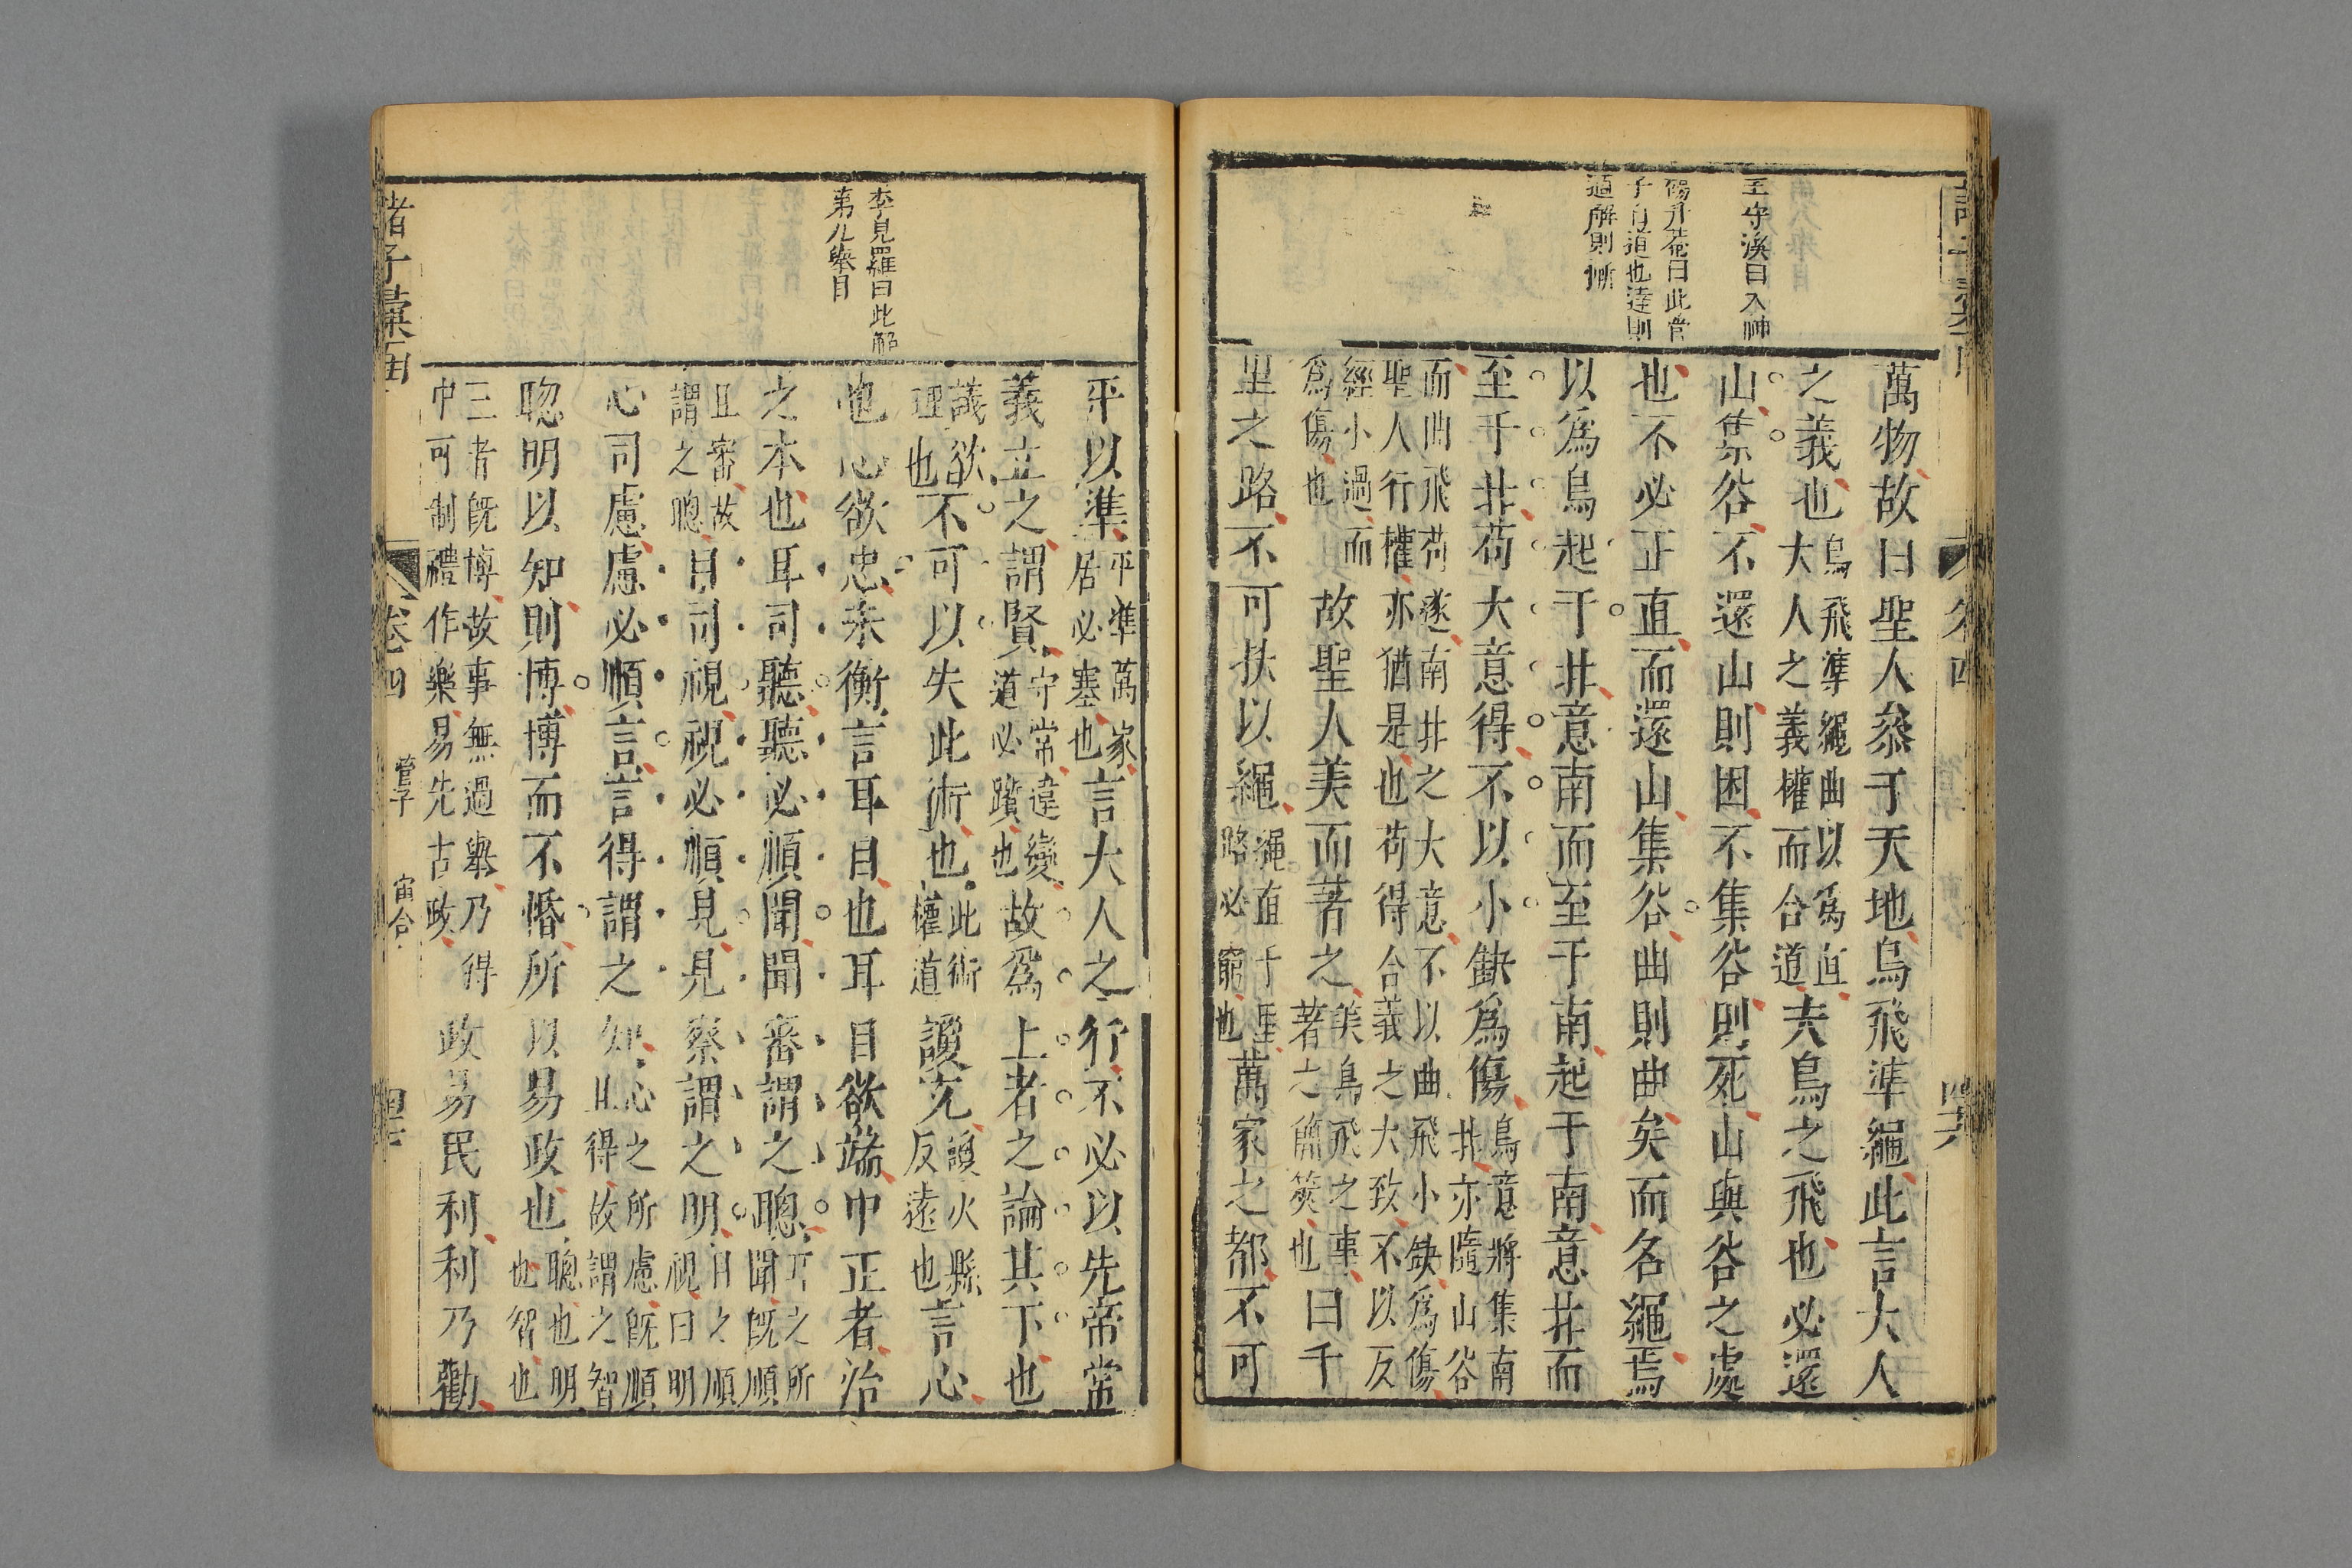 王守溪曰入神
楊升菴曰此管
子自道也達則
通解則慚
萬物故曰聖人叅于天地鳥飛準繩此言大人
之義也鳥飛準繩曲以為直大人之義權而合道夫鳥之飛也必還
山集谷不還山則困不集谷則死山與谷之處
也不必正直而還山集谷曲則曲矣而名繩焉
以為鳥起于北意南而至于南起于南意北而
至于北苟大意得不以小缺為傷鳥意將集南北亦隨山谷
而曲飛苟遂南北之大意不以曲飛小缺為傷
聖人行權亦猶是也苟得合義之大致不以反
經小過而為傷也故聖人美而著之美鳥飛之事著之簡筴也曰千
里之路不可扶以繩繩直千里路必窮也萬家之都不可
平以準平準萬家居必塞也言大人之行不必以先帝常
義立之謂賢守常違變道必躓也故為上者之論其下也
議欲理也不可以失此術也此術權道讂充讂火縣反遠也言心
李見羅曰此解
第八舉目
也心欲忠耒衡言耳目也耳目欲端中正者治
之本也耳司聽聽必順聞聞審謂之聰耳之所聞既順
且審故謂之聰目司視視必順見見察謂之明目之順視曰明
心司慮慮必順言言得謂之知心之所慮既順且得故謂之智
聦明以知則博博而不惛所以易政也聰也明也智也
三者既博故事無過舉乃得中可制禮作樂易先古政政易民利利乃勸
諸子彚函
卷四
管子
宙合